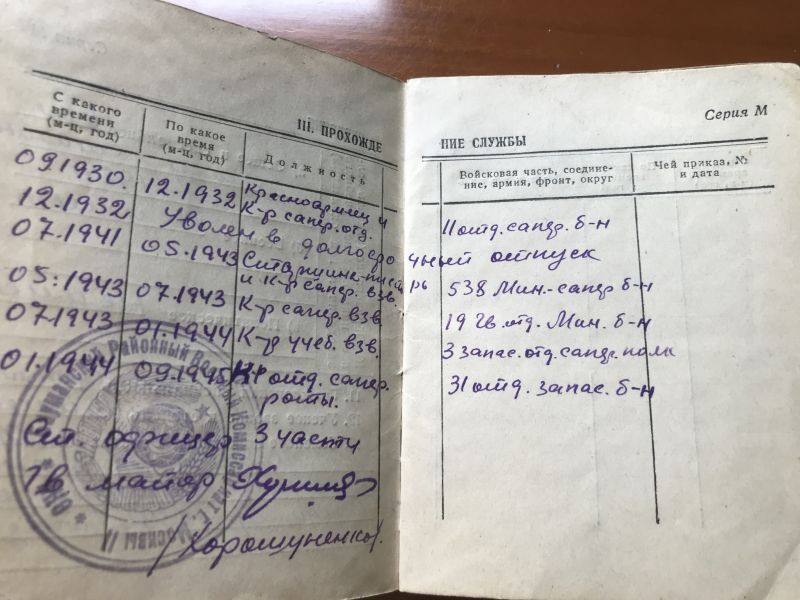 Серия М
III. ПРОХОЖДЕ
НИЕ СЛУЖБЫ
С какого времени (м-ц, год)
По какое время (м-ц, год)
Должность
Войсковая часть, соединение, армия, фронт, округ
Чей приказ, № и дата
09.1930. 12.1932 Красноармеец и К-р сапр. отд. 11 отд. сапр. б-н
12.1932 Уволен в долгосрочный отпуск
07.1941 05.1943 Старшина-писарь и К-р сапр. взв. 538 Мин.-сапр б-н
05.1943 07.1943 К-р сапр. взв 19 Гв. отд. Мин. б-н
07.1943 01.1944 К-р учеб. взв. 3 запас. отд. сапр. полк
01.1944 09.1945 К-р отд. сапр. роты. 31 отд. запас. б-н
Ст. офицер 3 части
Гв майор
/Хорошуненко/.